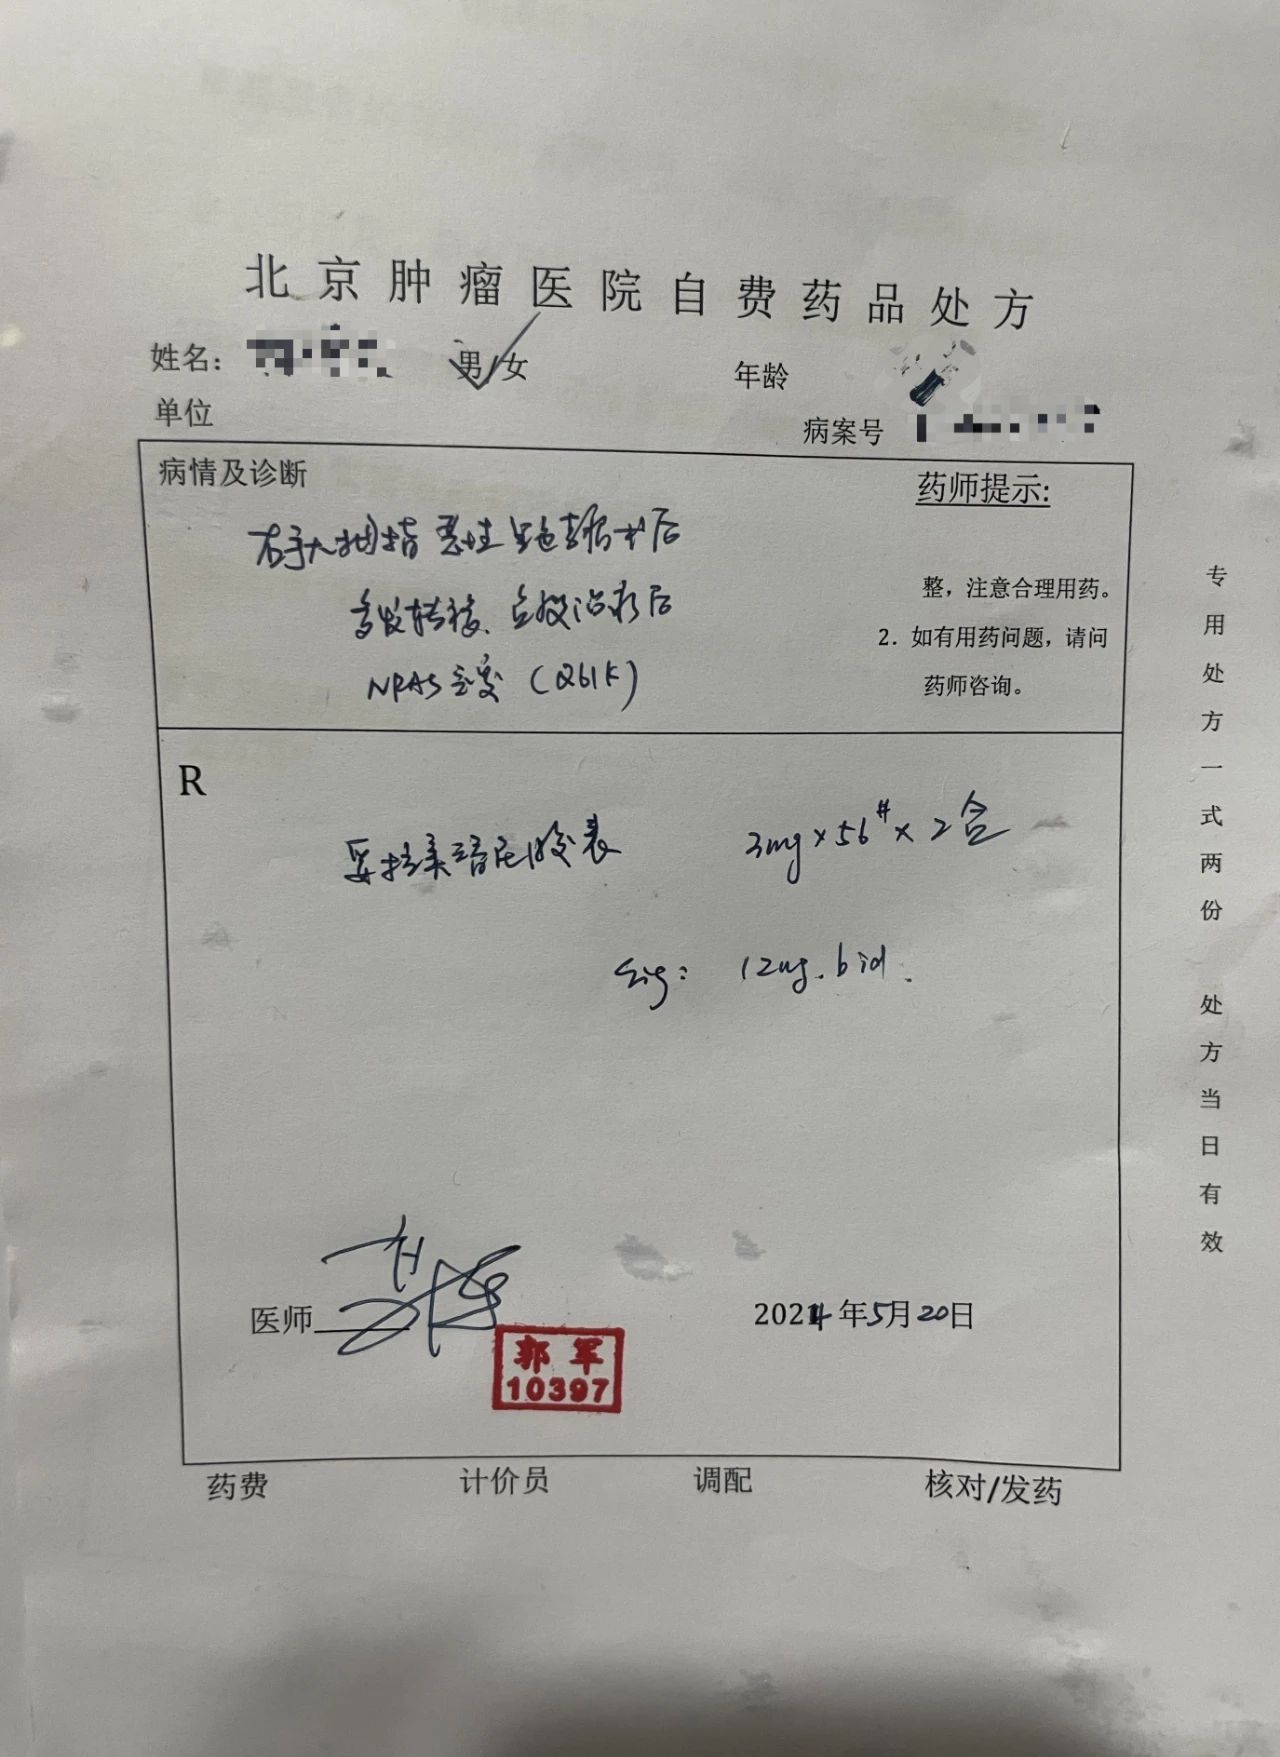 北京肿瘤医院自费药品处方
姓名： 男/女 年龄
单位 病案号
病情及诊断
右手大拇指恶性黑色素瘤术后
多发转移、多段治疗后
NRAS突变（Q61K）
药师提示:
整，注意合理用药。
2. 如有用药问题，请问
药师咨询。
R
妥拉美替尼胶囊 3mg×56#×2盒
Sig: 12mg. bid.
医师
郭军
10397
2024年5月20日
药费 计价员 调配 核对/发药
专用处方一式两份 处方当日有效